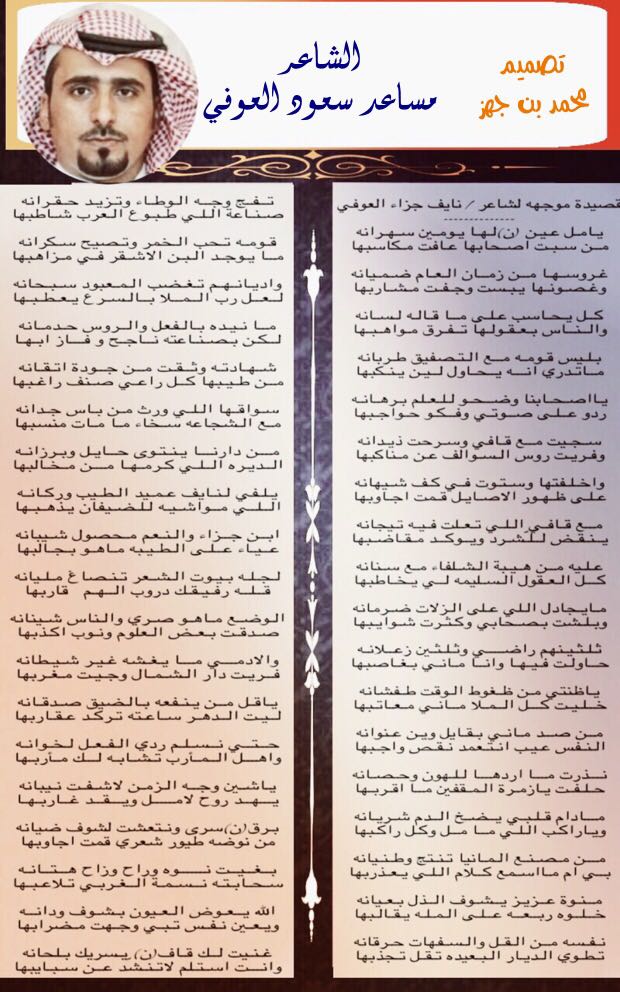 الشاعر
مساعد سعود العوفي
تصميم
محمد بن جهز
قصيدة موجهه لشاعر / نايف جزاء العوفي
يامل عين (ن)لها يومين سهرانه
من سبت اصحابها عافت مكاسبها
غروسها من زمان العام ضميانه
وغصونها يبست وجفت مشاربها
كل يحاسب على ما قاله لسانه
والناس بعقولها تفرق مواهبها
بليس قومه مع التصفيق طربانه
ماتدري انه يحاول لين ينكبها
يااصحابنا وضحو للعلم برهانه
ردو على صوتي وفكو حواجبها
سجيت مع قافي وسرحت ذيدانه
وفريت روس السوالف عن مناكبها
واخلفتها وستوت في كف شيهانه
على ظهور الاصايل قمت اجاوبها
مع قافي اللي تعلت فيه تيجانه
ينقض للشرد ويوكد مقاضبها
عليه من هيبة الشلفاء مع سنانه
كل العقول السليمه لي يخاطبها
مايجادل اللي على الزلات ضرمانه
وبلشت بصحابي وكثرت شوايبها
ثلثينهم راضي وثلثين زعلانه
حاولت فيها وانا ماني بغاصبها
ياظنتي من ظغوط الوقت طفشانه
خليت كل الملا ماني معاتبها
من صد ماني بقايل وين عنوانه
النفس عيب انتعمد نقص واجبها
نذرت ما اردها للهون وحصانه
حلفت يازمرة المقفين ما اقربها
مادام قلبي يضخ الدم شريانه
وياراكب اللي ما مل وكل راكبها
من مصنع المانيا تنتج وطنيانه
بي ام مااسمع كلام اللي يعذربها
منوة عزيز يشوف الذل بعيانه
خلوه ربعه على المله يقالبها
نفسه من القل والسفهات حرقانه
تطوي الديار البعيده تقل تجذبها
تفج وجه الوطاء وتزيد حقرانه
صناعة اللي طبوع العرب شاطبها
قومه تحب الخمر وتصيح سكرانه
ما يوجد البن الاشقر في مزاهبها
واديانهم تغضب المعبود سبحانه
لعل رب الملا بالسرع يعطبها
ما نيده بالفعل والروس حدمانه
لكن بصناعته ناجح و فاز ابها
شهادته وثقت من جودة اتقانه
من طيبها كل راعي صنف راغبها
سواقها اللي ورث من باس جدانه
مع الشجاعه سخاء ما مات منسبها
من دارنا ينتوى حايل وبرزانه
الديره اللي كرمها من مخالبها
يلفي لنايف عميد الطيب وركانه
اللي مواشيه للضيفان يذهبها
ابن جزاء والنعم محصول شيبانه
عياء على الطيبه ماهو بجالبها
لجله بيوت الشعر تنصاغ مليانه
قله رفيقك دروب الهم قاربها
الوضع ماهو صري والناس شينانه
صدقت بعض العلوم ونوب اكذبها
والادمي ما يغشه غير شيطانه
فريت دار الشمال وجيت مغربها
ياقل من ينفعه بالضيق صدقانه
ليت الدهر ساعته تركد عقاربها
حتي نسلم ردي الفعل لخوانه
واهل المآرب تشابه لك مآربها
ياشين وجه الزمن لاشفت نيبانه
يهد روح لامل ويقد غاربها
برق(ن)سرى ونتعشت لشوف ضيانه
من نوضه طيور شعري قمت اجاوبها
بغيت نوه وراح وزاح هتانه
سحابته نسمة الغربي تلاعبها
الله يعوض العيون بشوف ودانه
ويعين نفس تبي وجهت مضرابها
غنيت لك قاف(ن) يسريك بلحانه
وانت استلم لاتنشد عن سبايبها